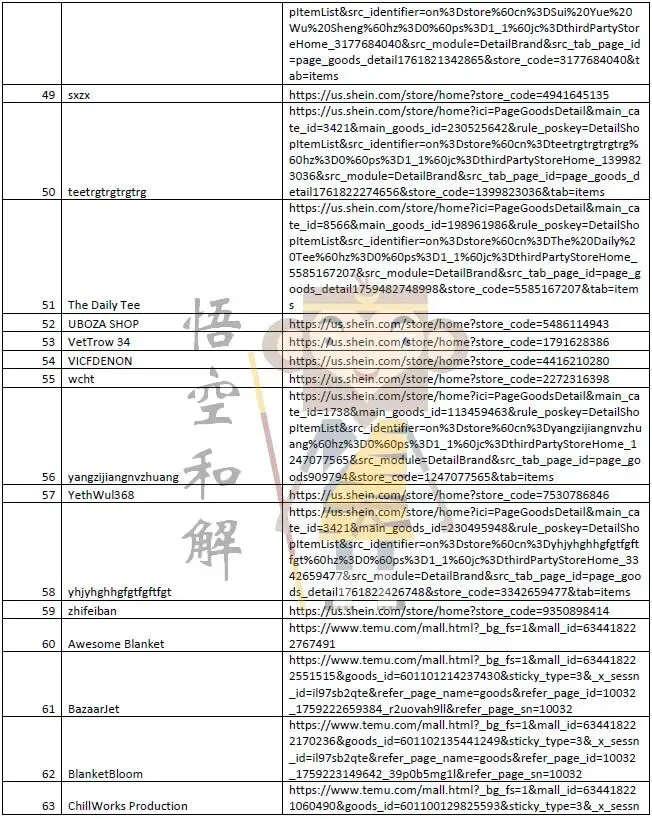 pItemList&src_identifier=on%3Dstore%60cn%3DSui%20Yue%20
Wu%20Sheng%60hz%3D0%60ps%3D1_1%60jc%3DthirdPartyStor
eHome_3177684040&src_module=DetailBrand&src_tab_page_id
=page_goods_detail1761821342865&store_code=3177684040&t
ab=items
49 sxzx https://us.shein.com/store/home?store_code=4941645135
https://us.shein.com/store/home?ici=PageGoodsDetail&main_ca
te_id=3421&main_goods_id=230525642&rule_poskey=DetailSho
pItemList&src_identifier=on%3Dstore%60cn%3Dteetrgtrgtrgtrg%
60hz%3D0%60ps%3D1_1%60jc%3DthirdPartyStoreHome_139982
3036&src_module=DetailBrand&src_tab_page_id=page_goods_d
50 teetrgtrgtrgtrg etail1761822274656&store_code=1399823036&tab=items
https://us.shein.com/store/home?ici=PageGoodsDetail&main_ca
te_id=8566&main_goods_id=198961986&rule_poskey=DetailSho
pItemList&src_identifier=on%3Dstore%60cn%3DThe%20Daily%2
0Tee%60hz%3D0%60ps%3D1_1%60jc%3DthirdPartyStoreHome_
5585167207&src_module=DetailBrand&src_tab_page_id=page_g
oods_detail1759482748998&store_code=5585167207&tab=item
51 The Daily Tee s
52 UBOZA SHOP https://us.shein.com/store/home?store_code=5486114943
53 VetTrow 34 https://us.shein.com/store/home?store_code=1791628386
54 VICFDENON https://us.shein.com/store/home?store_code=4416210280
55 wcht https://us.shein.com/store/home?store_code=2272316398
https://us.shein.com/store/home?ici=PageGoodsDetail&main_ca
te_id=1738&main_goods_id=113459463&rule_poskey=DetailSho
pItemList&src_identifier=on%3Dstore%60cn%3Dyangzijiangnvzhu
ang%60hz%3D0%60ps%3D1_1%60jc%3DthirdPartyStoreHome_1
247077565&src_module=DetailBrand&src_tab_page_id=page_go
56 yangzijiangnvzhuang ods909794&store_code=1247077565&tab=items
57 YethWul368 https://us.shein.com/store/home?store_code=7530786846
https://us.shein.com/store/home?ici=PageGoodsDetail&main_ca
te_id=3421&main_goods_id=230495948&rule_poskey=DetailSho
pItemList&src_identifier=on%3Dstore%60cn%3Dyhjyhghhgfgtfgft
fgt%60hz%3D0%60ps%3D1_1%60jc%3DthirdPartyStoreHome_33
42659477&src_module=DetailBrand&src_tab_page_id=page_goo
58 yhjyhghhgfgtfgftfgt ds_detail1761822426748&store_code=3342659477&tab=items
59 zhifeiban https://us.shein.com/store/home?store_code=9350898414
https://www.temu.com/mall.html?_bg_fs=1&mall_id=63441822
60 Awesome Blanket 2767491
https://www.temu.com/mall.html?_bg_fs=1&mall_id=63441822
2551515&goods_id=601101214237430&sticky_type=3&_x_sessn
_id=il97sb2qte&refer_page_name=goods&refer_page_id=10032
61 BazaarJet _1759222659384_r2uovah9ll&refer_page_sn=10032
https://www.temu.com/mall.html?_bg_fs=1&mall_id=63441822
2170236&goods_id=601102135441249&sticky_type=3&_x_sessn
_id=il97sb2qte&refer_page_name=goods&refer_page_id=10032
62 BlanketBloom _1759223149642_39p0b5mg1l&refer_page_sn=10032
https://www.temu.com/mall.html?_bg_fs=1&mall_id=63441822
63 ChillWorks Production 1060490&goods_id=601100129825593&sticky_type=3&_x_sessn
悟空和解